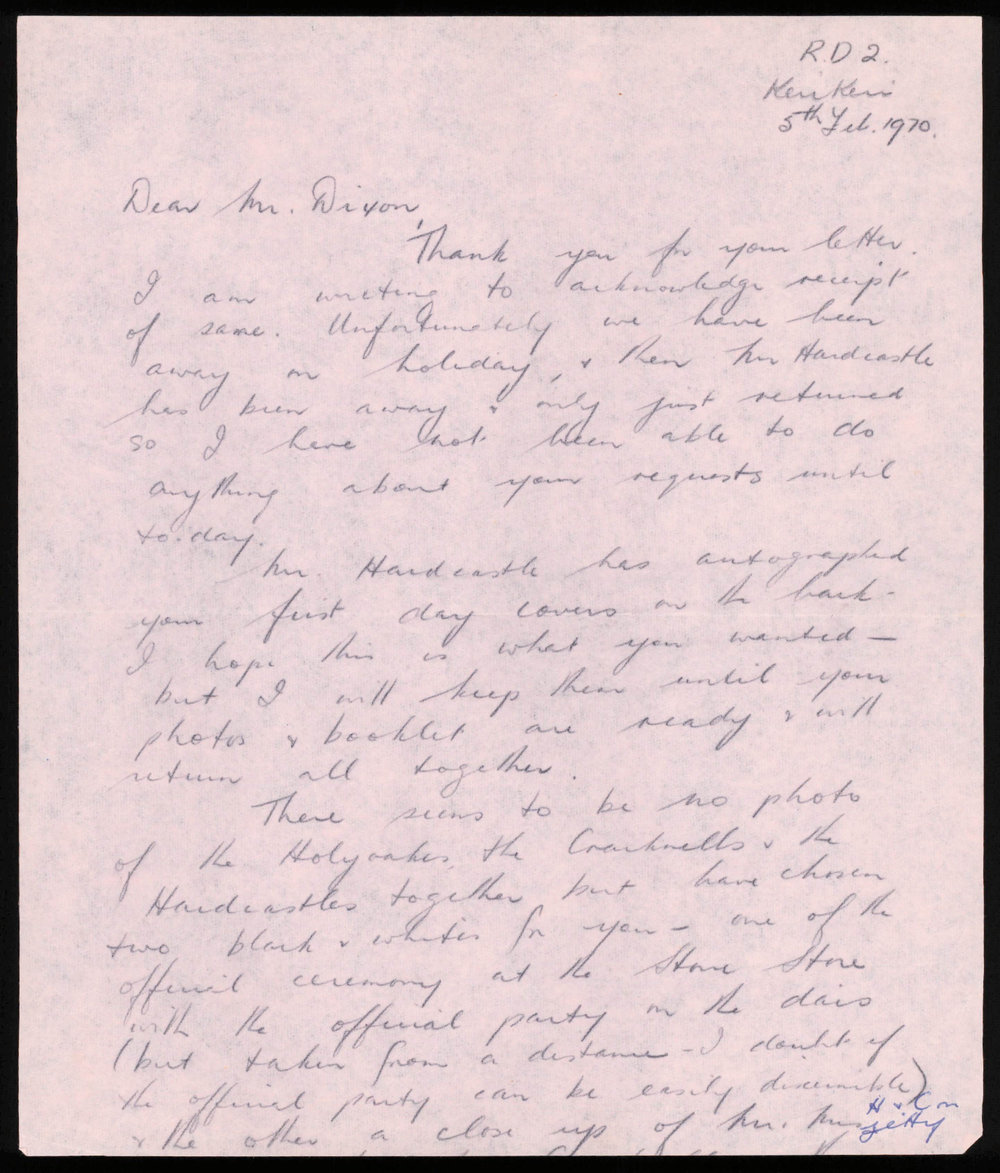 R.D 2.
Keri Keri
5th Feb. 1970.
Dear Mr. Dixon,
Thank you for your letter.
I am writing to acknowledge receipt
of same. Unfortunately we have been
away on holiday, & then Mr Hardcastle
has been away & only just returned
so I have not been able to do
anything about your requests until
to-day.
Mr. Hardcastle has autographed
your first day covers on the back -
I hope this is what you wanted -
but I will keep them until your
photos & booklet are ready & will
return all together.
There seems to be no photo
of the Holyoakes, the Cracknells & the
Hardcastles together but have chosen
two black & whites for you - one of the
official ceremony at the Stone Store
with the official party on the dais
(but taken from a distance - I doubt if
the official party can be easily discernible)
& the other a close up of Mr. Mrs
H & C on
jetty